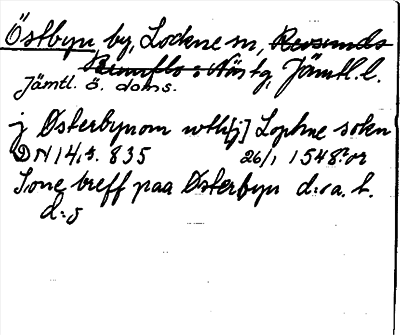 Östbyn by, Lockne sn, Revsunds
Brunflo o Näs tg, Jämtl. l.
Jämtl. ö. doms.
j Østerbynom wthj] Lophne sokn
DN 14, s. 835 26/1 1548? or
Tone breff paa Østerbyn d:o a. b.
d:o